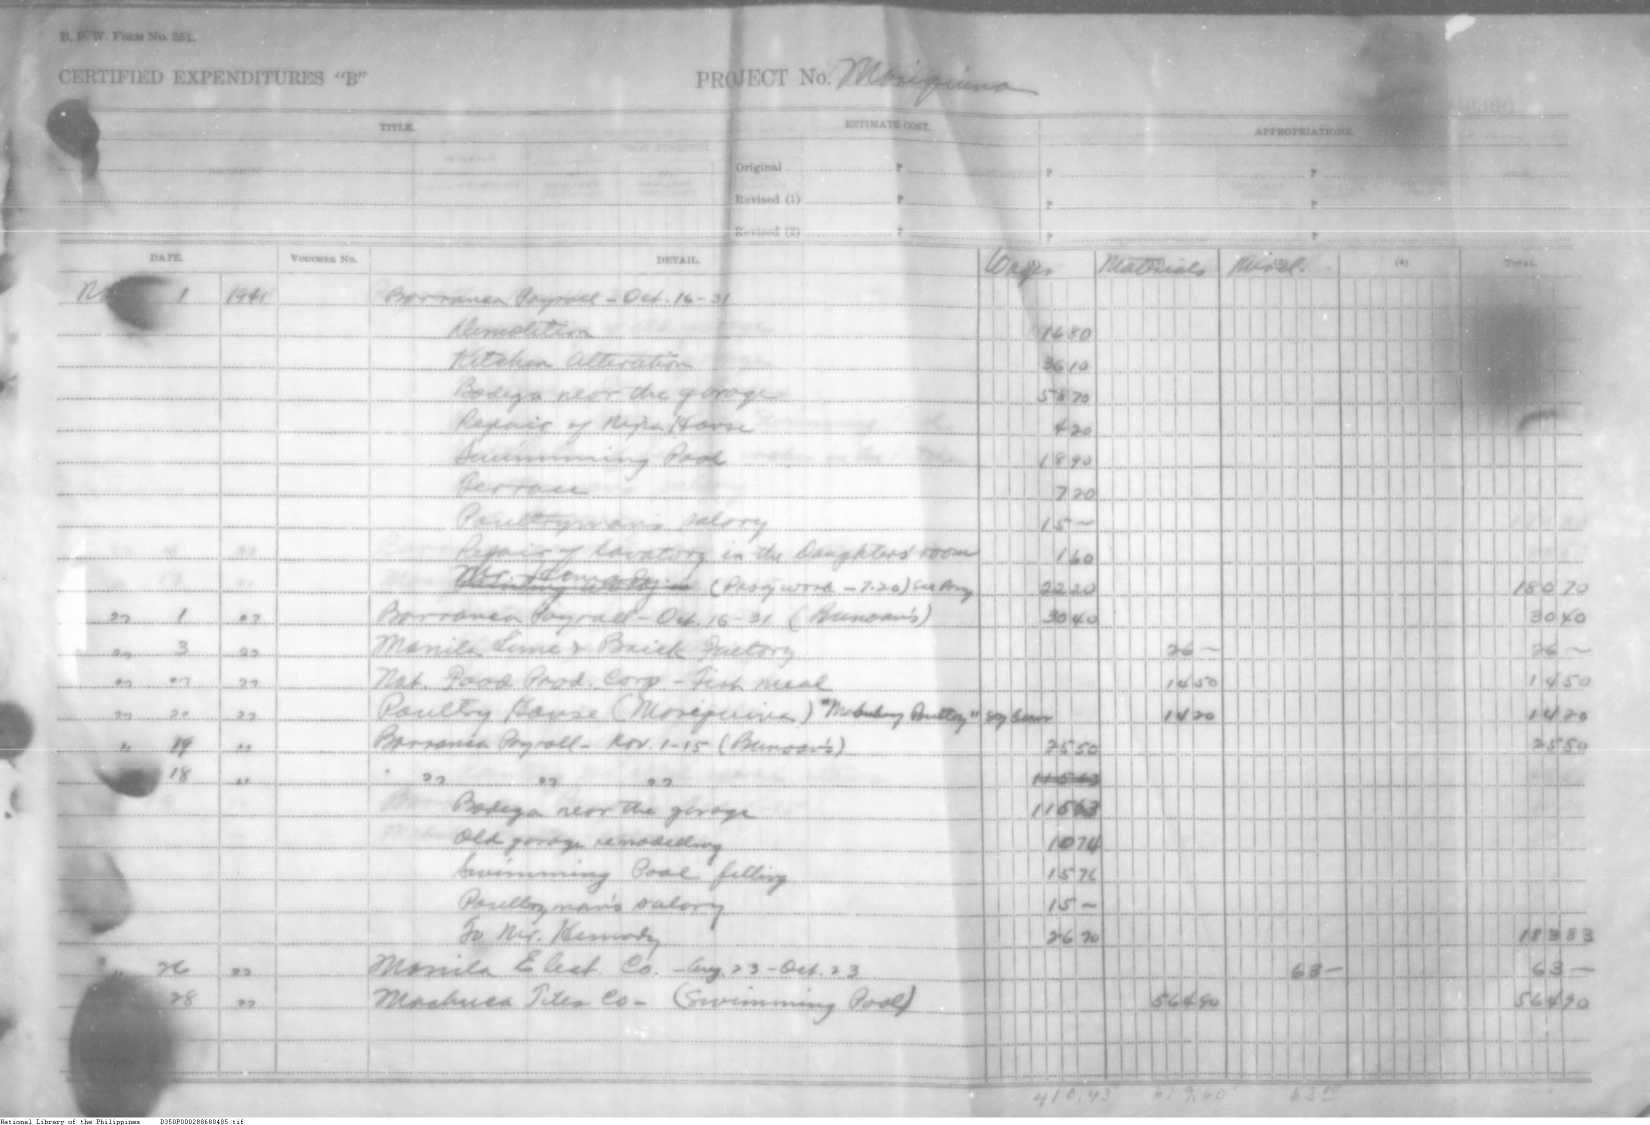 B. P. W. Form No. 551.
CERTIFIED EXPENDITURES "B" PROJECT No. Mariquina
TITLE. ESTIMATE COST. APPROPRIATIONS.
Original P P P
Revised (1) P P P
Revised (2) P P P
DATE. VOUCHER No. DETAIL. Wages Materials Miscl. (4) TOTAL.
1 1941 Barranca Payroll - Oct. 16-31
Demolition 1680
Kitchen Alteration 3610
Bodega near the garage 5870
Repair of Nipa House 420
Swimming Pool 1890
Terrace 720
Poultryman's salary 15 —
Repair of lavatory in the Daughters' room 160
2220 18070
" 1 " Barranca Payroll - Oct. 16-31 (Buncan's) 3040 3040
" 3 " Manila Lime & Brick Factory 26 — 26 —
" " " Nat. Food Prod. Corp - Fish meal 1450 1450
" 20 " Poultry House (Mariquina) 1420 1420
" 19 " Barranca Payroll - Nov. 1-15 (Buncan's) 2550 2550
18 " " " "
Bodega near the garage
Old garage remodelling 1074
Swimming Pool filling 1576
Poultryman's salary 15 —
To Mr. Kennedy 2670 18383
" 26 " Manila Elect. Co. - Aug. 23 - Oct. 23 63 — 63 —
28 " Machuca Tiles Co - (Swimming Pool) 56490 56490
National Library of the Philippines D350P000288680485.tif